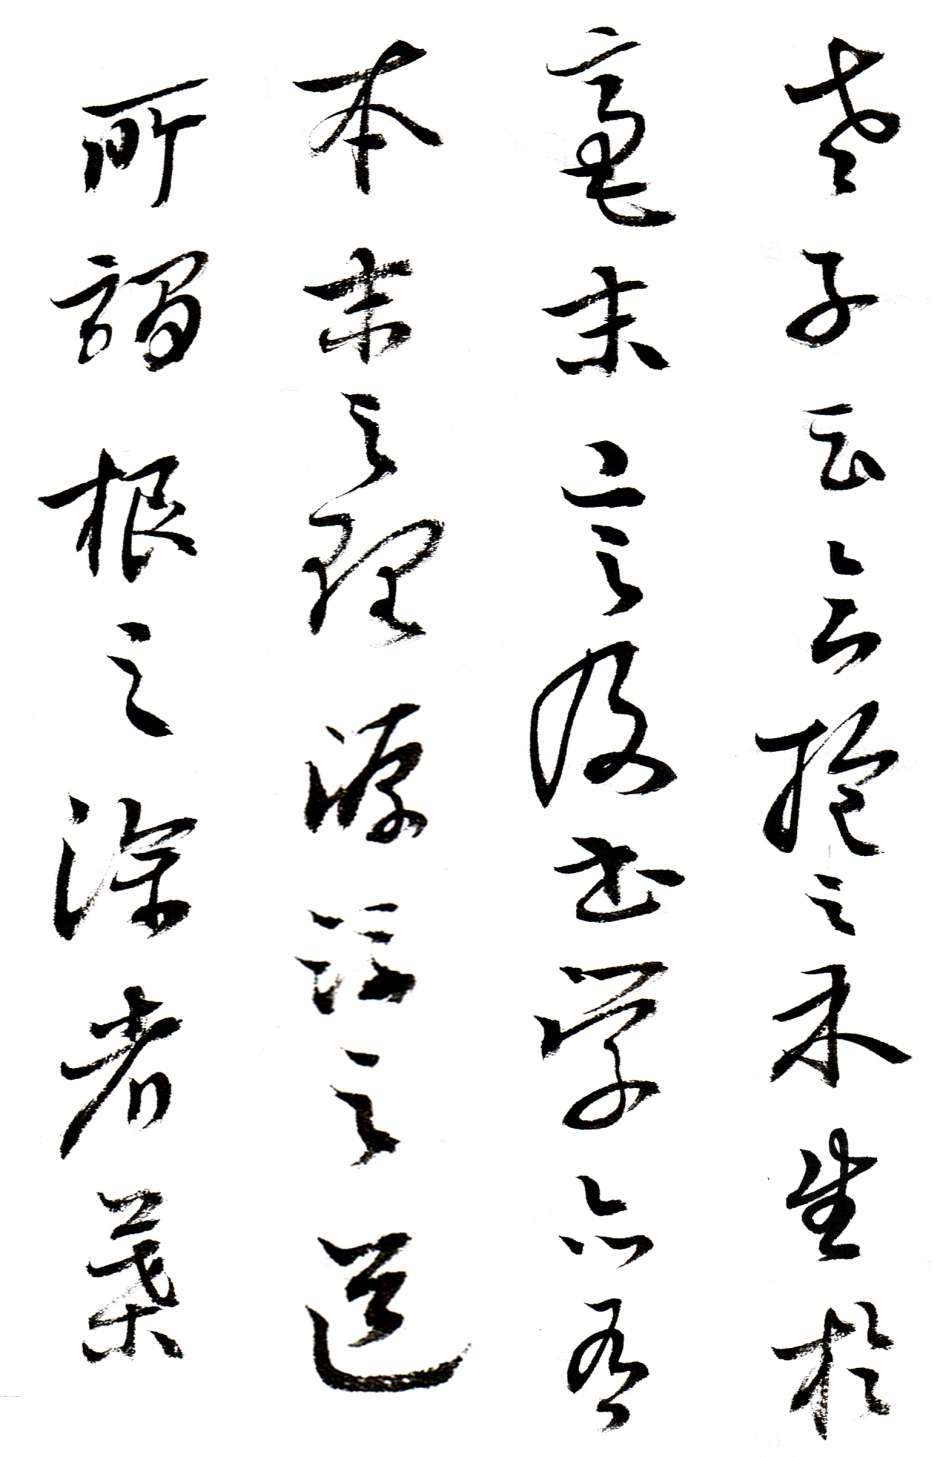 老子云合抱之木生於
毫末言及書学亦有
本末之理源流之道
所謂根之深者葉